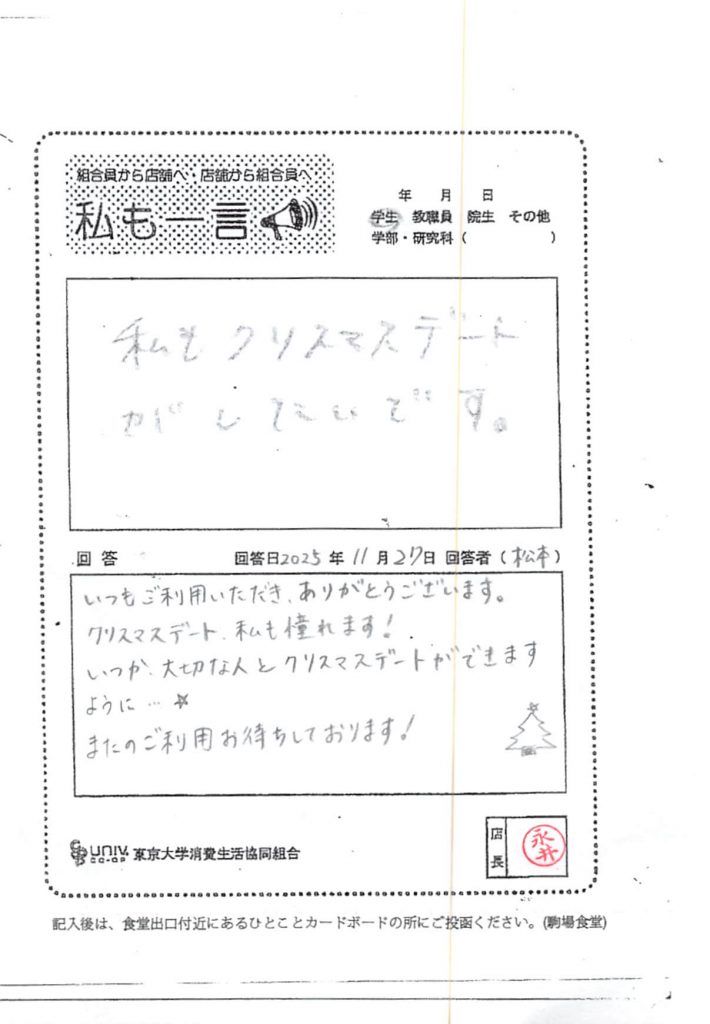 組合員から店舗へ・店舗から組合員へ
私も一言
年 月 日
学生 教職員 院生 その他
学部・研究科( )
私もクリスマスデート
がしたいです。
回答 回答日2025年11月27日 回答者(松本)
いつもご利用いただき、ありがとうございます。
クリスマスデート、私も憧れます!
いつか、大切な人とクリスマスデートができます
ように…☆
またのご利用お待ちしております!
UNIV. CO-OP 東京大学消費生活協同組合
店長 永井
記入後は、食堂出口付近にあるひとことカードボードの所にご投函ください。(駒場食堂)